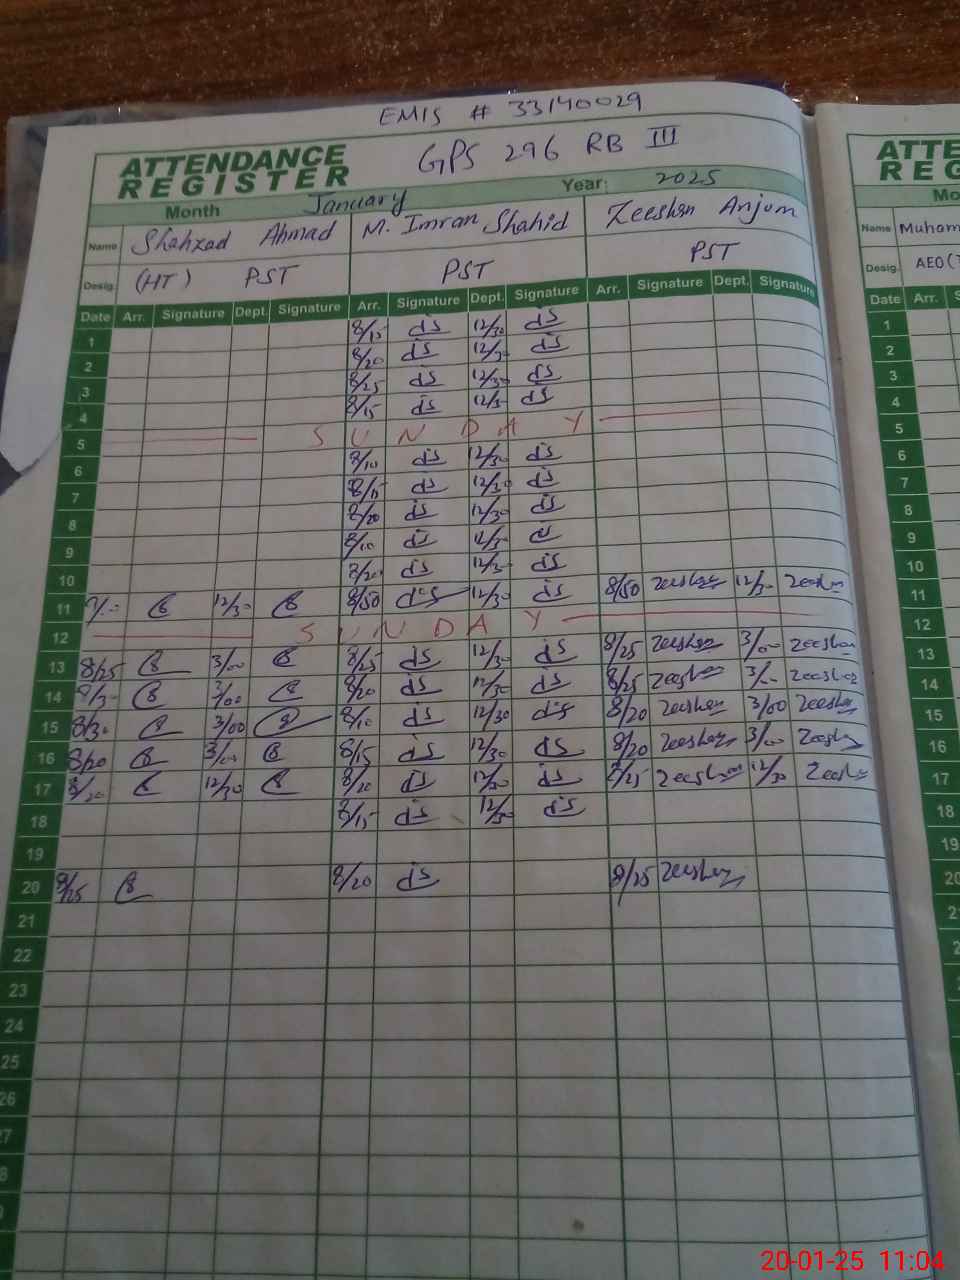 EMIS # 33140029
ATTENDANCE REGISTER GPS 296 RB III
Month January Year: 2025
Name Shahzad Ahmad M. Imran Shahid Zeeshan Anjum
Desig. (HT) PST PST PST
Date Arr. Signature Dept. Signature Arr. Signature Dept. Signature Arr. Signature Dept. Signature
1 8/15 12/30
2 8/20 12/30
3 8/25 12/30
4 8/15
5 SUNDAY
6 8/10 12/30
7 8/15 12/30
8 8/20 12/30
9 8/10
10 8/20
11 12/30 8/50 12/30 8/50 Zeeshan 12/30 Zeeshan
12 SUNDAY
13 8/25 3/00 8/25 12/30 8/25 Zeeshan 3/00 Zeeshan
14 8/30 3/00 8/20 12/30 8/25 Zeeshan Zeeshan
15 8/30 3/00 8/10 12/30 8/20 Zeeshan 3/00 Zeeshan
16 8/20 3/00 8/15 12/30 8/20 Zeeshan 3/00 Zeeshan
17 8/20 12/30 8/20 12/30 8/25 Zeeshan 12/30 Zeeshan
18 8/15
19
20 8/25 8/20 8/25 Zeeshan
21
22
23
24
25
26
27
ATTE
REG
Mo
Name Muham
Desig. AEO(
Date Arr. S
1
2
3
4
5
6
7
8
9
10
11
12
13
14
15
16
17
18
19
20
20-01-25 11:04